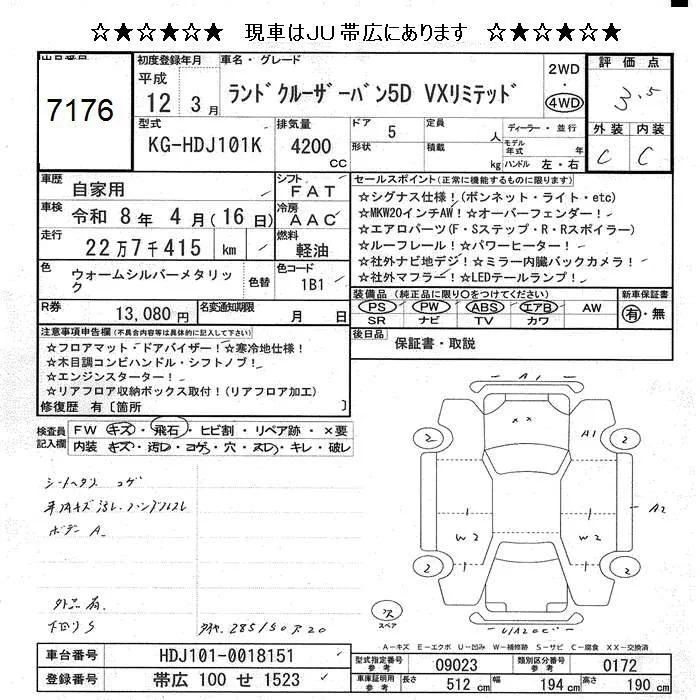 ☆★☆★☆★ 現車はJU帯広にあります ☆★☆★☆★
出品番号 7176
初度登録年月 平成 12年 3月
車名・グレード ランドクルーザーバン5D VXリミテッド
2WD ・ 4WD
評価点 3.5
外装 内装
C C
型式 KG-HDJ101K
排気量 4200 CC
ドア 5 定員 人
形状 積載 kg
ディーラー・並行
モデル年式 年
ハンドル 左・右
車歴 自家用
シフト FAT
車検 令和 8年 4月(16日)
冷房 AAC
走行 22万7千415 km
燃料 軽油
色 ウォームシルバーメタリック 色替
色コード 1B1
R券 13,080円
名変通知期限 月 日
セールスポイント(正常に機能するものに限ります)
☆シグナス仕様!(ボンネット・ライト・etc)
☆MKW20インチAW!☆オーバーフェンダー!
☆エアロパーツ(F・Sステップ・R・Rスポイラー)
☆ルーフレール!☆パワーヒーター!
☆社外ナビ地デジ!☆ミラー内臓バックカメラ!
☆社外マフラー!☆LEDテールランプ!
装備品(純正品に限り○をつけてください)
PS PW ABS エアB AW
SR ナビ TV カワ
新車保証書 有・無
後日品 保証書・取説
注意事項申告欄(不具合内容等は具体的に記入して下さい)
☆フロアマット・ドアバイザー!☆寒冷地仕様!
☆木目調コンビハンドル・シフトノブ!
☆エンジンスターター!
☆リアフロア収納ボックス取付!(リアフロア加工)
修復歴 有〔箇所 〕
検査員記入欄
FW キズ・飛石・ヒビ割・リペア跡・×要
内装 キズ・汚レ・コゲ・穴・スレ・キレ・破レ
シートヘタリ コゲ
内キズ汚レ ハンドルスレ
ボデー A
外品有
下回りS
タイヤ 285/50R20
A1
××
A1
2 2
A2
W2 W2
2 2
スペア
A－キズ E－エクボ U－凹み W－補修跡 S－サビ C－腐食 XX－交換済
車台番号 HDJ101-0018151
型式指定番号 参考 09023
類別区分番号 参考 0172
登録番号 帯広 100 せ 1523
車庫証明用 参考 長さ 512 cm 幅 194 cm 高さ 190 cm